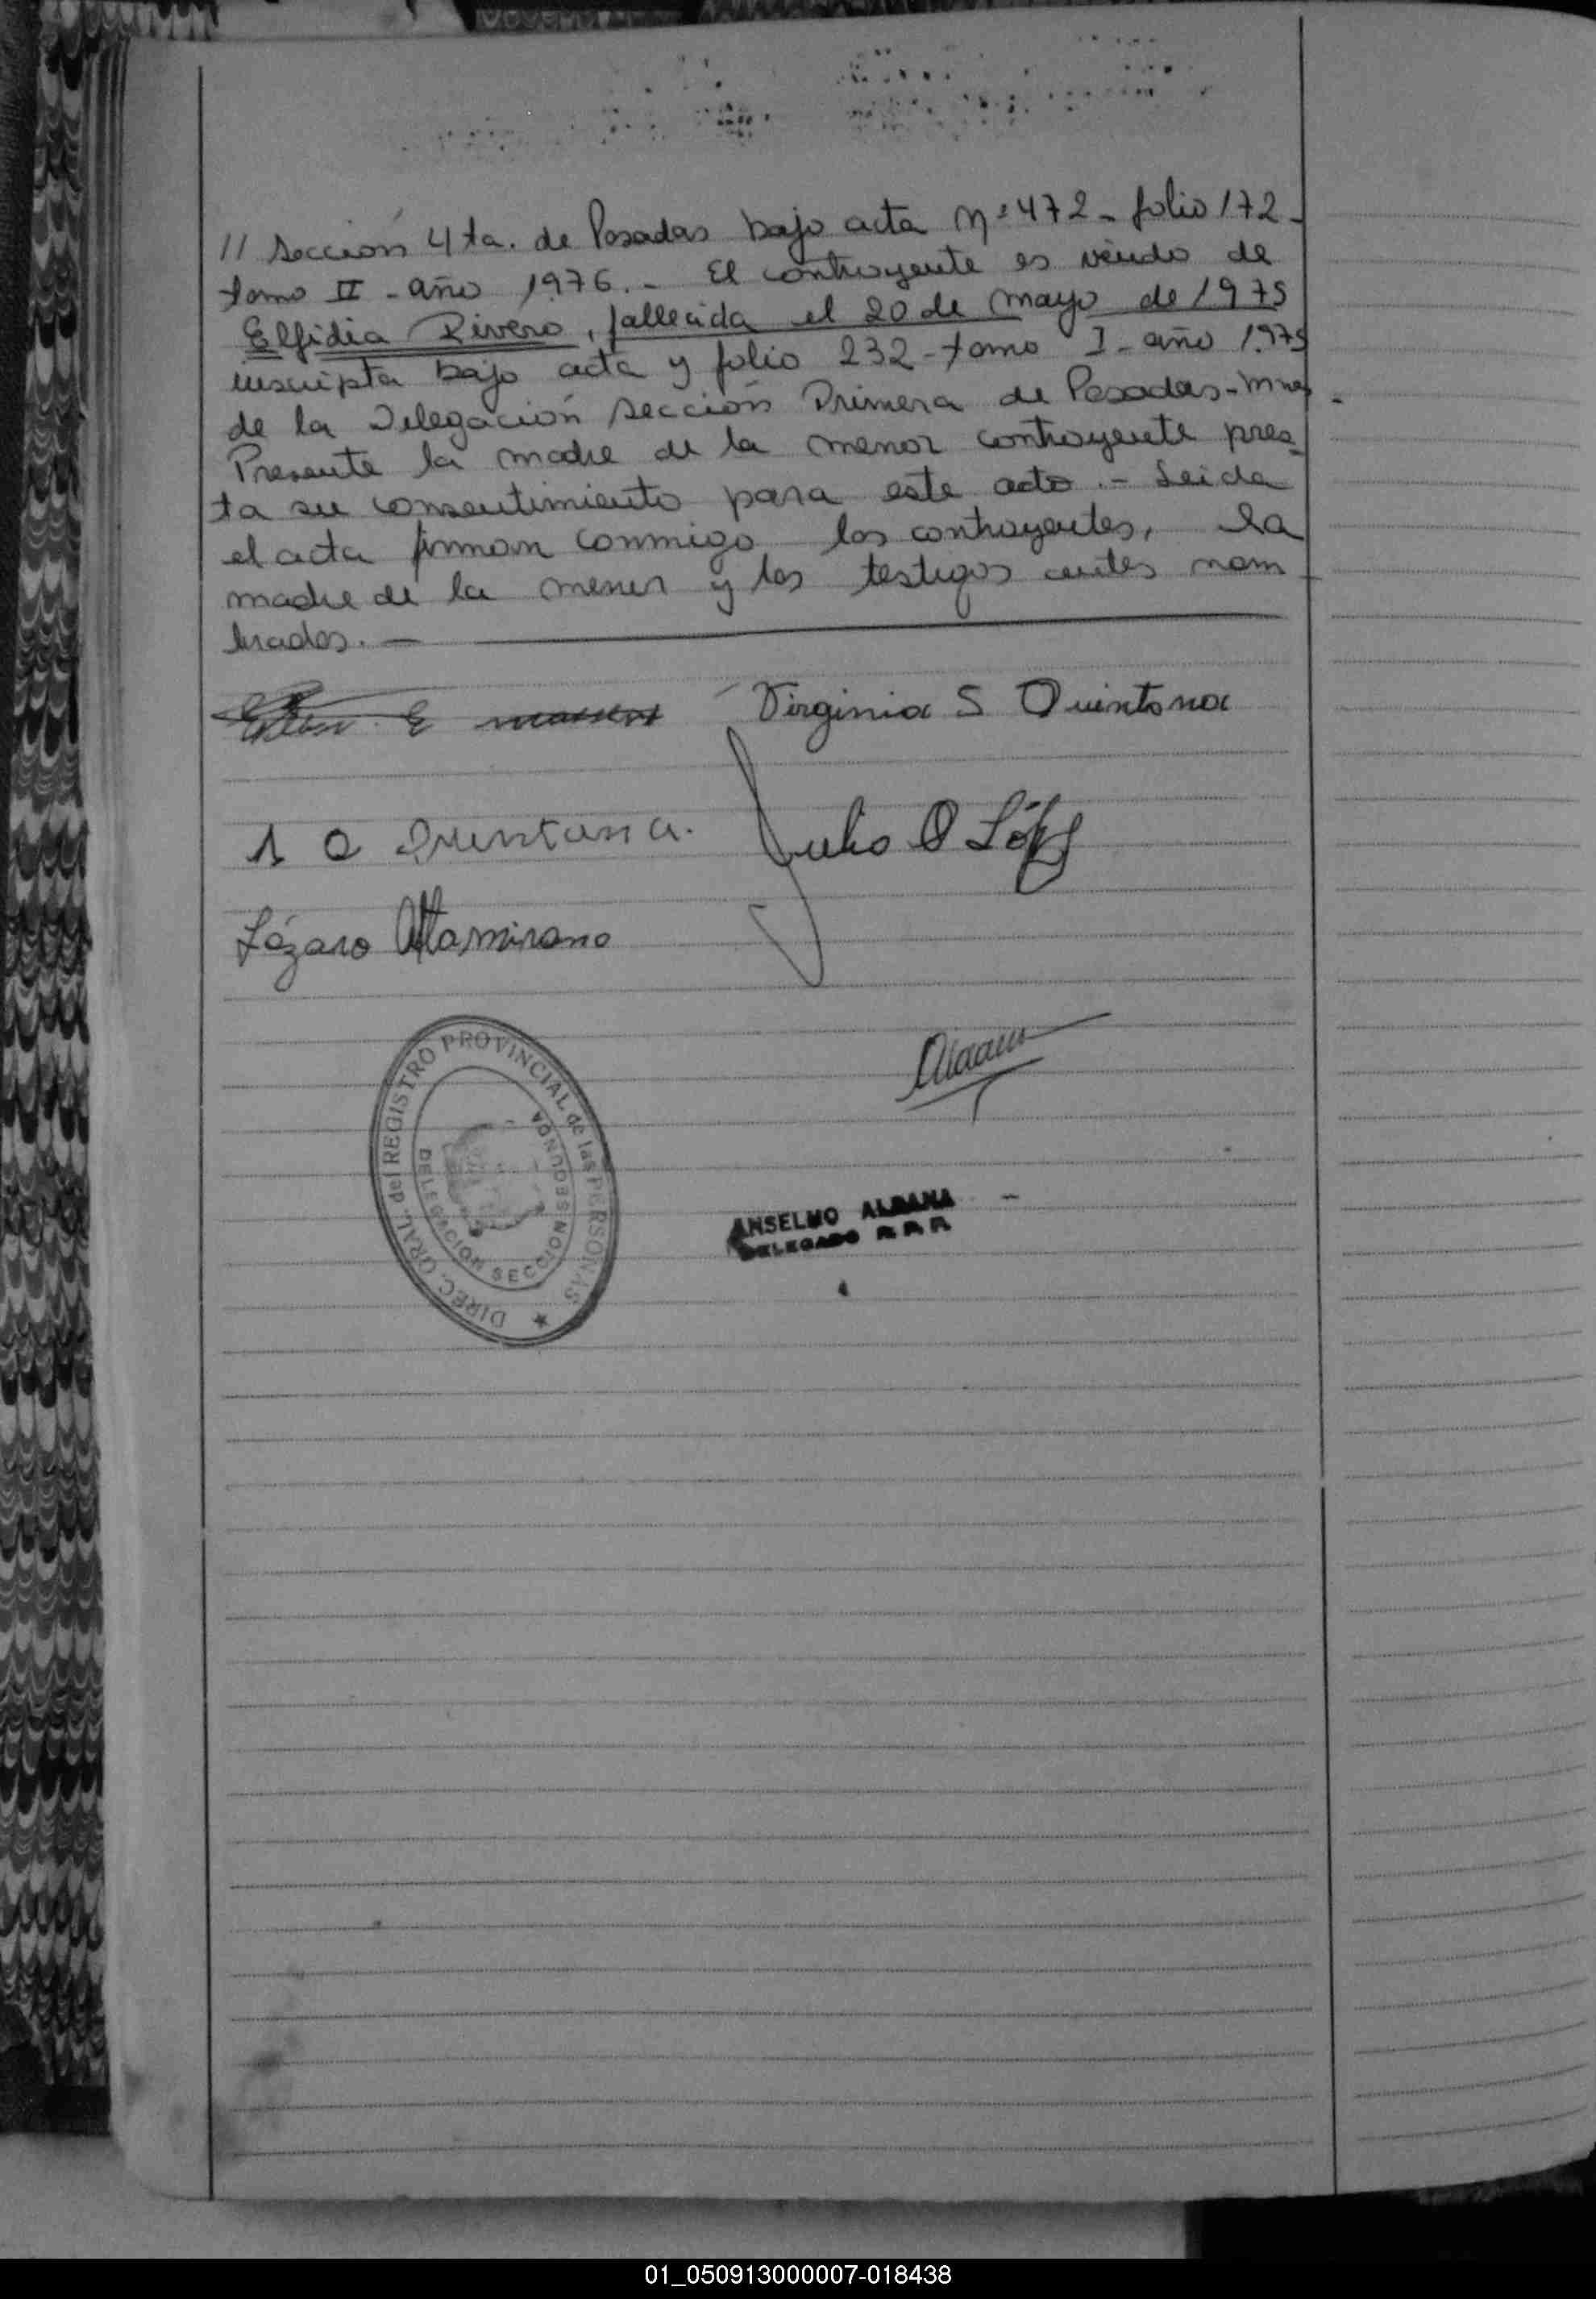 // sección 4ta. de Posadas bajo acta Nº 472 - folio 172 -
tomo II - año 1976. - El contrayente es viudo de
Elfidia Rivero, fallecida el 20 de mayo de 1975
inscripta bajo acta y folio 232 - tomo I - año 1975
de la Delegación sección Primera de Posadas - Mnes -
Presente la madre de la menor contrayente pres
ta su consentimiento para este acto. - Leida
el acta firman conmigo los contrayentes, la
madre de la menor y los testigos antes nom
brados. -
Virginia S Quintana
Quintana.
Julio O López
Lázaro Altamirano
DIREC. GRAL. del REGISTRO PROVINCIAL de las PERSONAS
DELEGACION SECCION SEGUNDA
ANSELMO ALDANA
DELEGADO R. P. P.
01_050913000007-018438